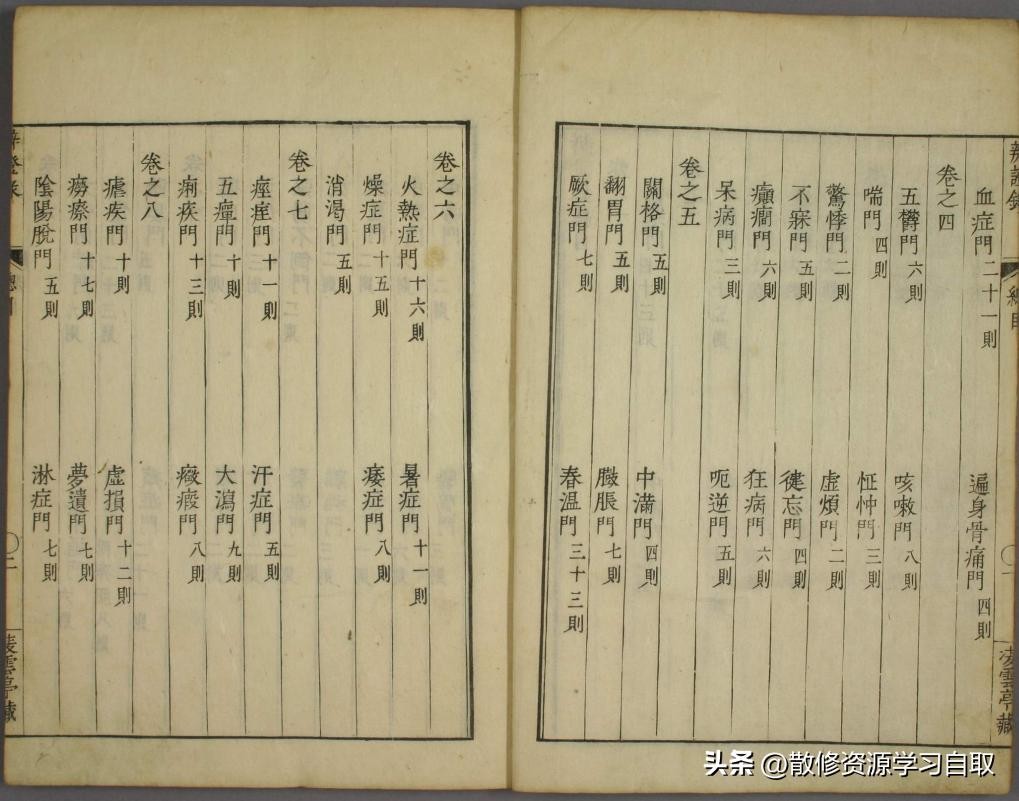 血症門 二十一則
遍身骨痛門 四則
卷之四
五鬱門 六則
咳嗽門 八則
喘門 四則
怔忡門 三則
驚悸門 二則
虛煩門 二則
不寐門 五則
健忘門 四則
癲癇門 六則
狂病門 六則
呆病門 三則
呃逆門 五則
卷之五
關格門 五則
中滿門 四則
翻胃門 五則
臌脹門 七則
厥症門 七則
春温門 三十三則
凌雲亭藏
卷之六
火熱症門 十六則
暑症門 十一則
燥症門 十五則
痿症門 八則
消渴門 五則
卷之七
痙痓門 十一則
汗症門 五則
五癉門 十則
大瀉門 九則
痢疾門 十三則
癥瘕門 八則
卷之八
瘧疾門 十則
虛損門 十二則
癆瘵門 十七則
夢遺門 七則
陰陽脫門 五則
淋症門 七則
凌雲亭藏
头条 @散修资源学习自取